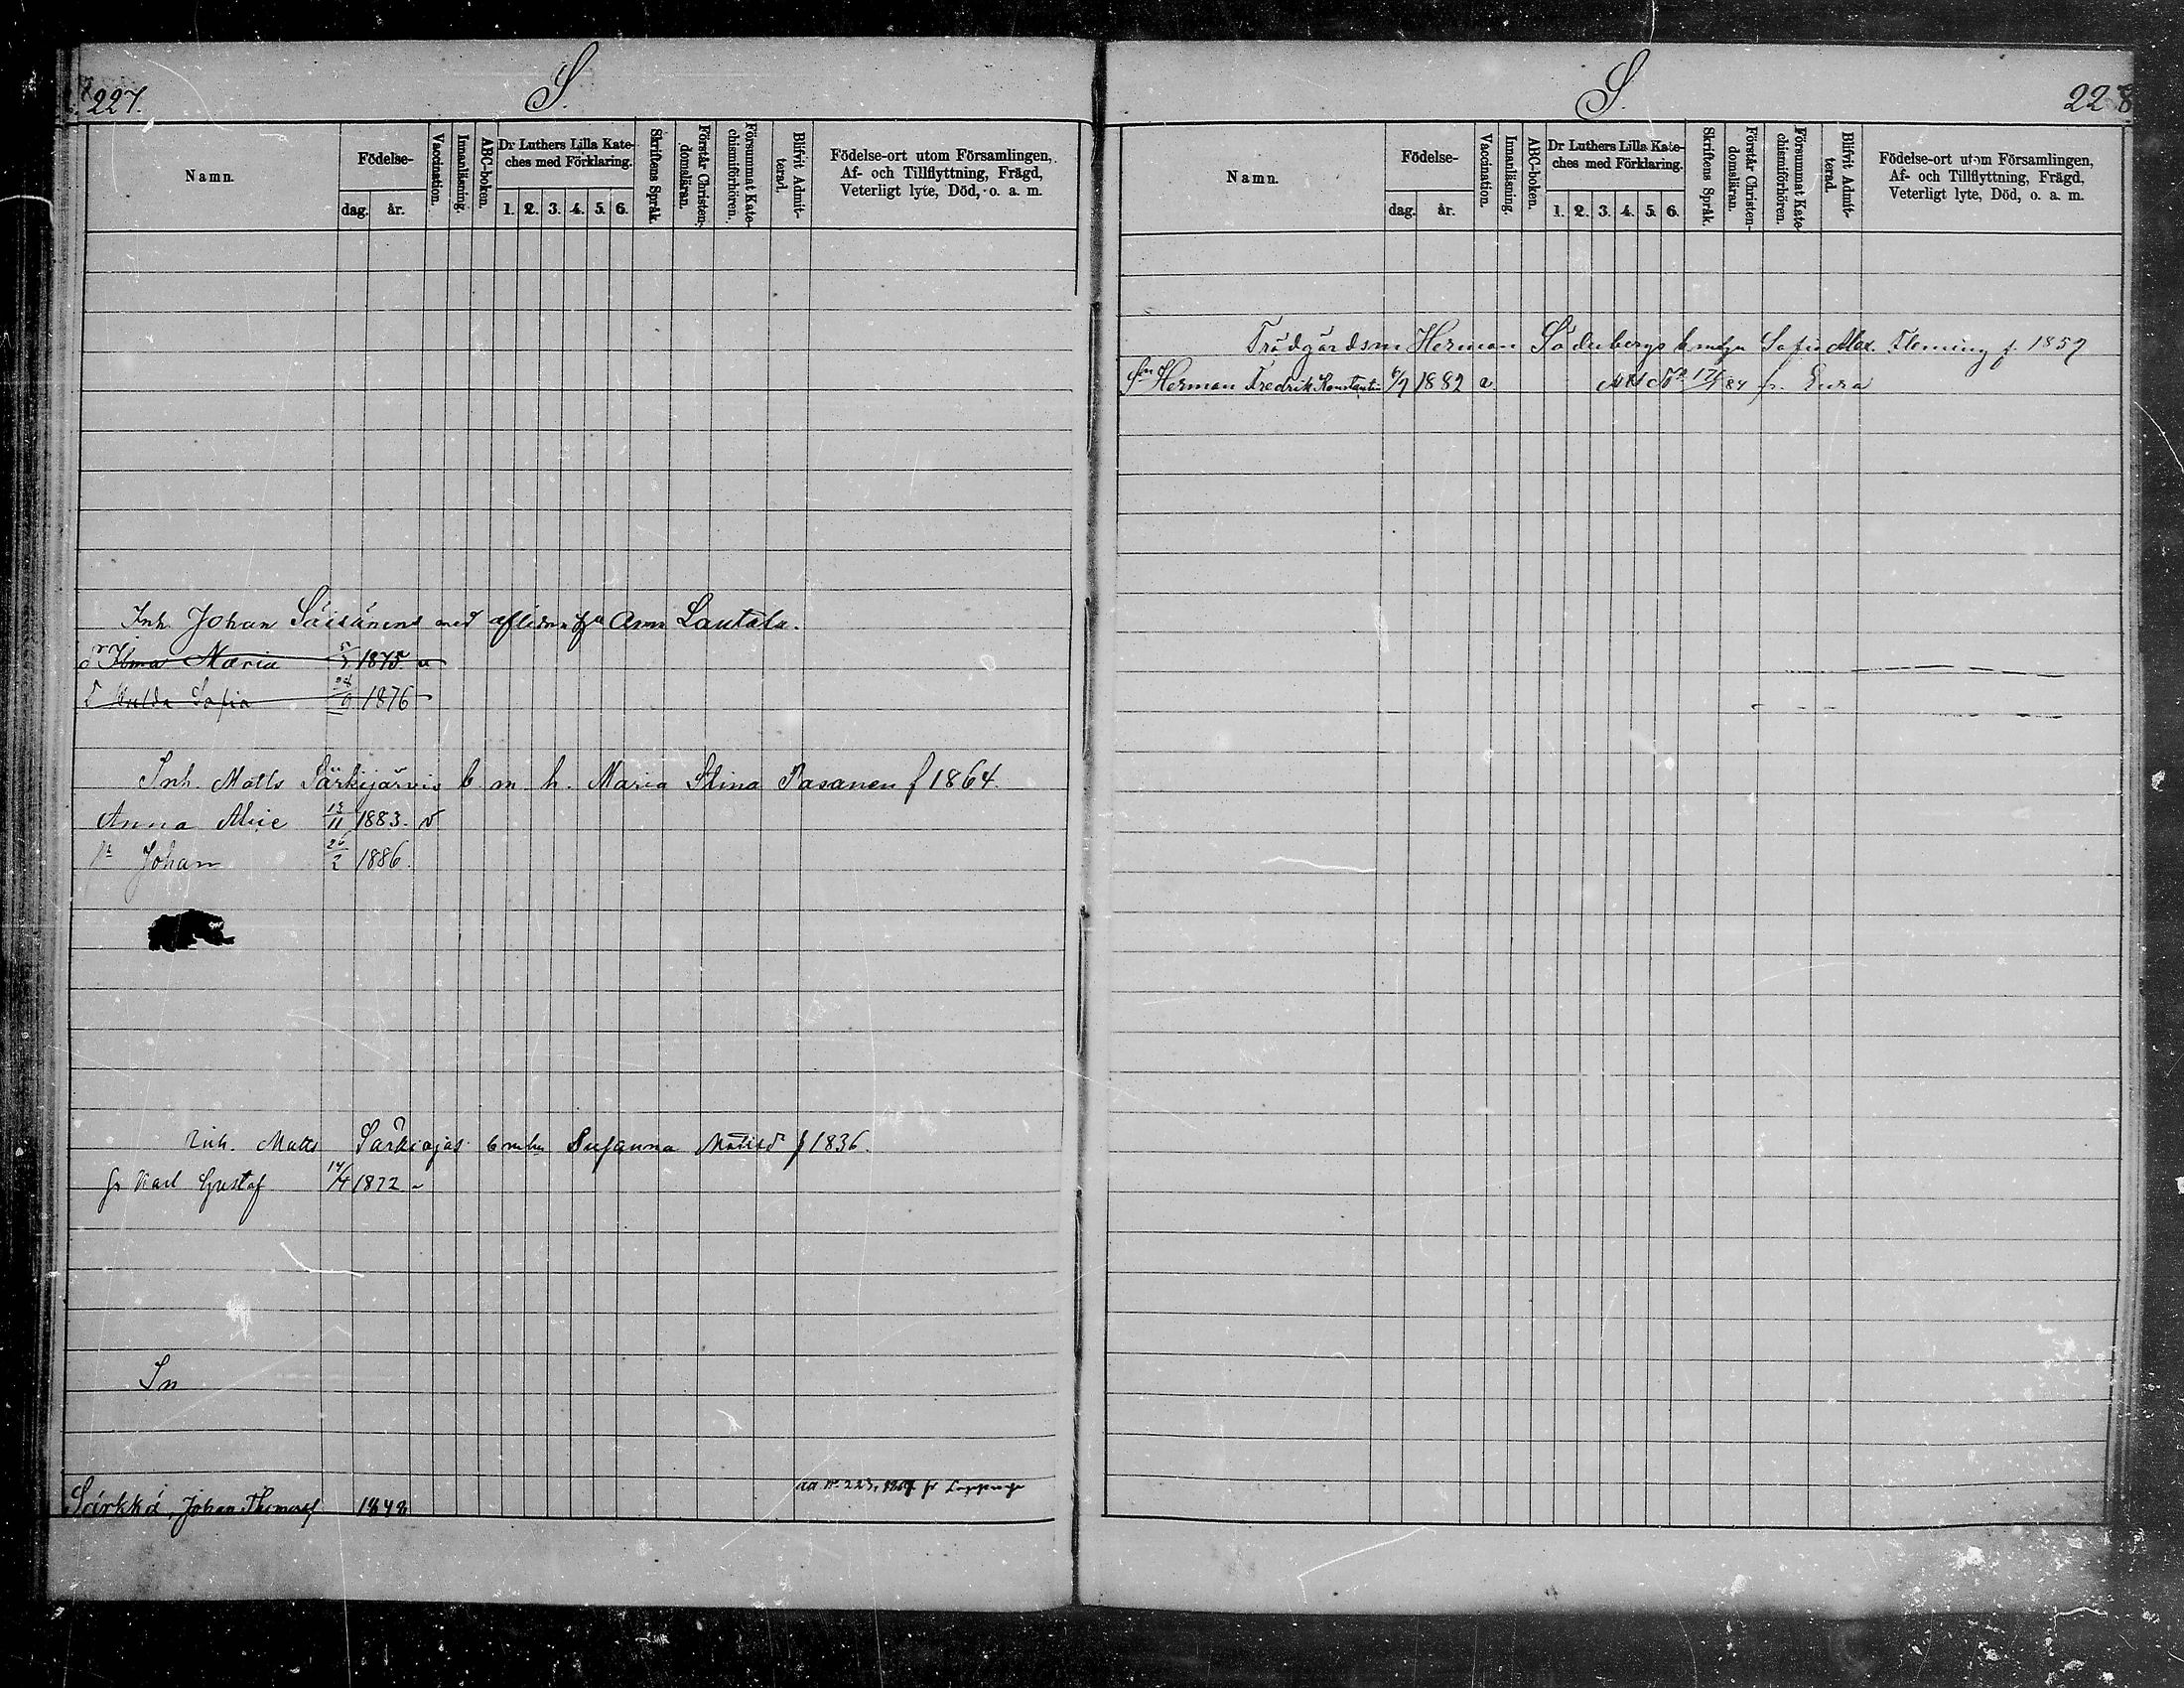 227.
S.
Namn.
Födelse-
dag.
år.
Vaccination.
Innanläsning.
ABC-boken.
Dr Luthers Lilla Kate-
ches med Förklaring.
1. 2. 3. 4. 5. 6.
Skriftens Språk.
Förstår Christen-
domsläran.
Försummat Kate-
chismiförhören.
Blifvit Admit-
terad.
Födelse-ort utom Församlingen,
Af- och Tillflyttning, Frägd,
Veterligt lyte, Död, o. a. m.
Inh. Johan Säisänens med aflidna Anna Lautala.
Maria 1875
Hulda Sofia 1876
Inh. Matts Särkijärvis b m h. Maria Stina Pasanen f 1864.
Anna Alice 13/11 1883. v
Johan 26/2 1886.
Inh. Matts Särkiojas b m h Susanna Matisd f 1836.
Karl Gustaf 14/4 1872
Sn
Särkkä, Johan Thomasf 1848
S.
228
Namn.
Födelse-
dag.
år.
Vaccination.
Innanläsning.
ABC-boken.
Dr Luthers Lilla Kate-
ches med Förklaring.
1. 2. 3. 4. 5. 6.
Skriftens Språk.
Förstår Christen-
domsläran.
Försummat Kate-
chismiförhören.
Blifvit Admit-
terad.
Födelse-ort utom Församlingen,
Af- och Tillflyttning, Frägd,
Veterligt lyte, Död, o. a. m.
Trädgårdsm Herman Söderbergs b Sofia Alex. Fleming f. 1857
Herman Fredrik Konstantin 6/7 1882 84 fr. Eura